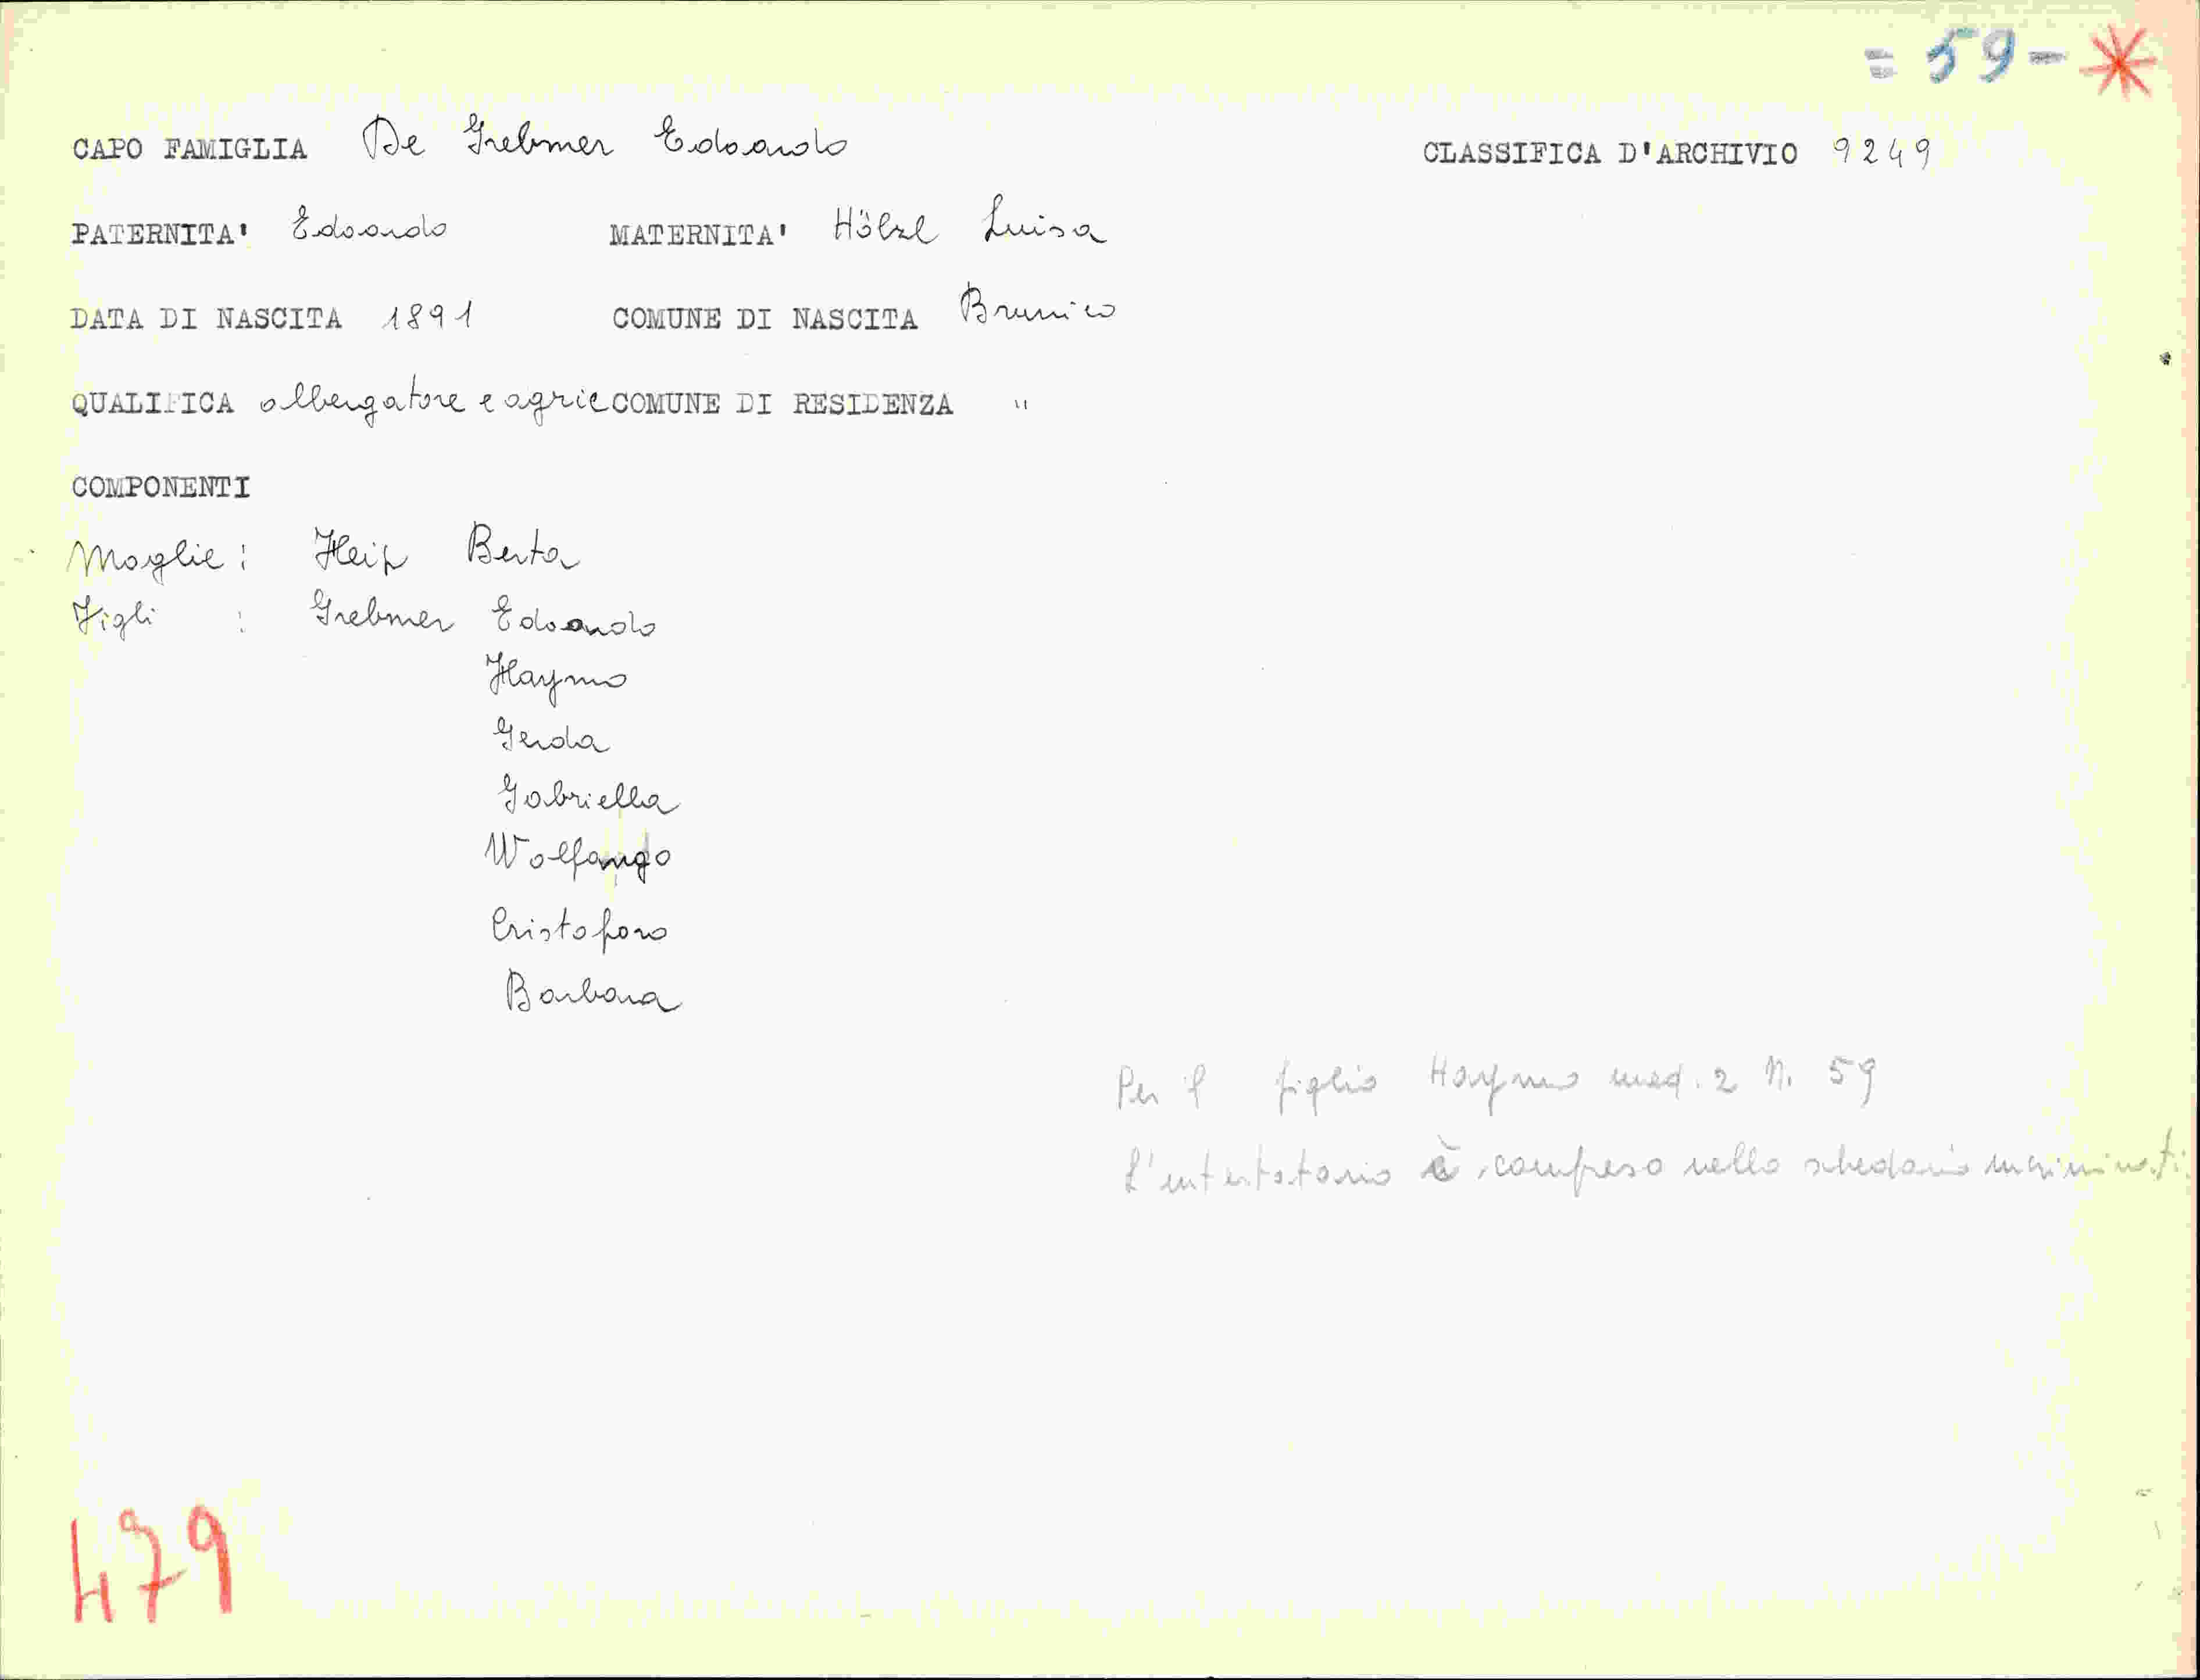 = 59 - *
CAPO FAMIGLIA De Grebmer Edoardo CLASSIFICA D'ARCHIVIO 9249
PATERNITA' Edoardo MATERNITA' Hölzl Luisa
DATA DI NASCITA 1891 COMUNE DI NASCITA Brunico
QUALIFICA albergatore e agric COMUNE DI RESIDENZA "
COMPONENTI
Moglie: Berta
Figli : Grebmer Edoardo
Haymo
Gerda
Gabriella
Wolfango
Cristoforo
Barbara
Per il figlio Haymo 2 N. 59
L'intestatario è compreso nello schedario
479